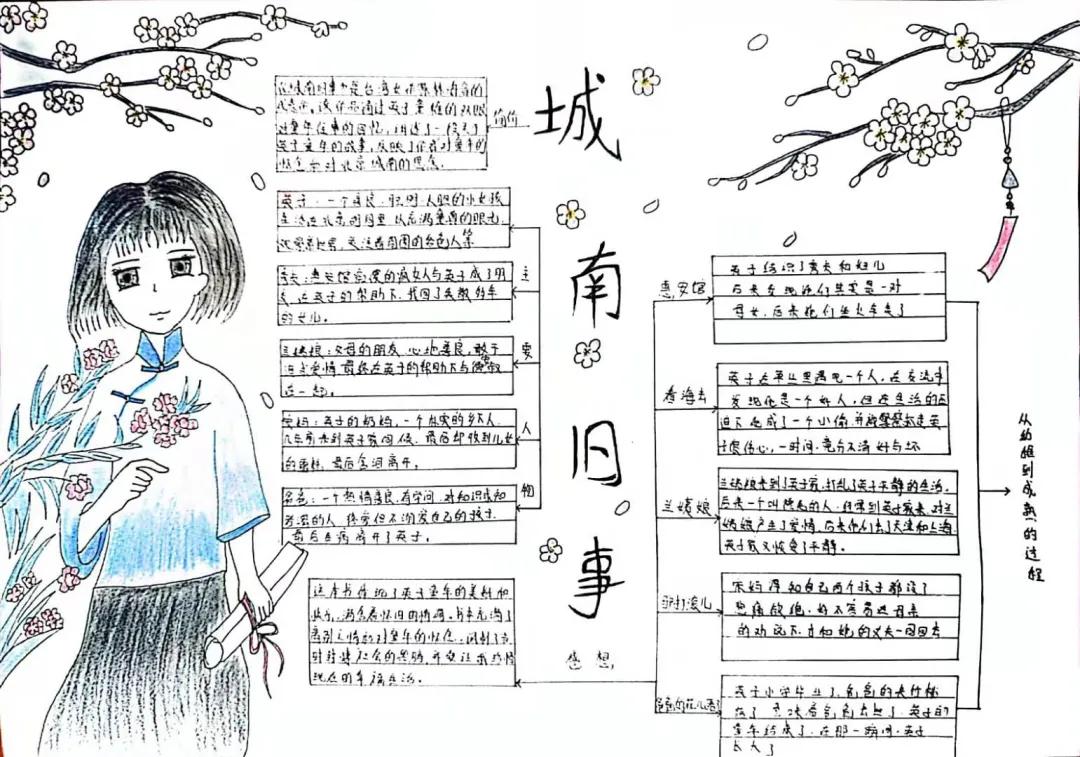 城南旧事
简介
《城南旧事》是台湾女作家林海音的
代表作。该作品通过英子童稚的双眼
对童年往事的回忆，讲述了一段关于
英子童年的故事，反映了作者对童年的
怀念和对北京城南的思念。
主要人物
英子：一个善良、聪明、人胆的小女孩
生活在北京胡同里，从充满童真的眼光
观察着世界，关注着周围的各色人等
秀贞：惠安馆的疯女人与英子成了朋
友，在英子的帮助下，找回了失散多年
的女儿。
兰姨娘：父母的朋友，心地善良，敢于
追求爱情，最终在英子的帮助下与德叔
在一起。
宋妈：英子的奶妈，一个朴实的乡下人
几年前来到英子家同住，最后却
最后含泪离开。
爸爸：一个热情善良、有学问、对知识
的人，终爱但不溺爱自己的孩子，
最后因病离开了英子。
感想
这本书体现了英子童年的美好和
快乐，
现在的幸福生活。
惠安馆
英子结识了秀贞和妞儿
后来发现她们其实是一对
母女，后来她们坐火车走了
看海去
英子在草丛里遇见一个人，在交流中
发现他是一个好人，但迫于生活的压
迫下他成了一个小偷，并被警察抓走英
子很伤心，一时间竟分不清好与坏
兰姨娘
兰姨娘来到了英子家，打乱了英子平静的生活。
后来一个叫德先的人，经常到英子家来，对兰
姨娘产生了爱情，后来他们去了天津和上海
英子家又恢复了平静。
驴打滚儿
宋妈得知自己两个孩子都没了
悲痛欲绝，好不容易英子母亲
的劝说下，才和她的丈夫一同回去
爸爸的花儿落了
英子小学毕业了，爸爸的夹竹桃
落了，
童年结束了，在那一瞬间，英子
长大了
从幼稚到成熟的过程